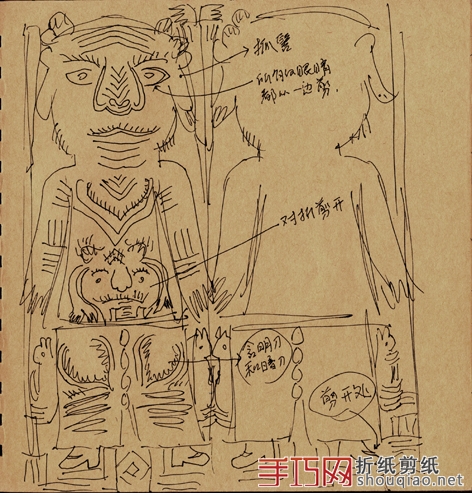 抓髻
所有的眼睛
都从一边剪.
对折剪开
含明刀
和暗刀
剪开处
手巧网
折纸剪纸
shouqiao.net